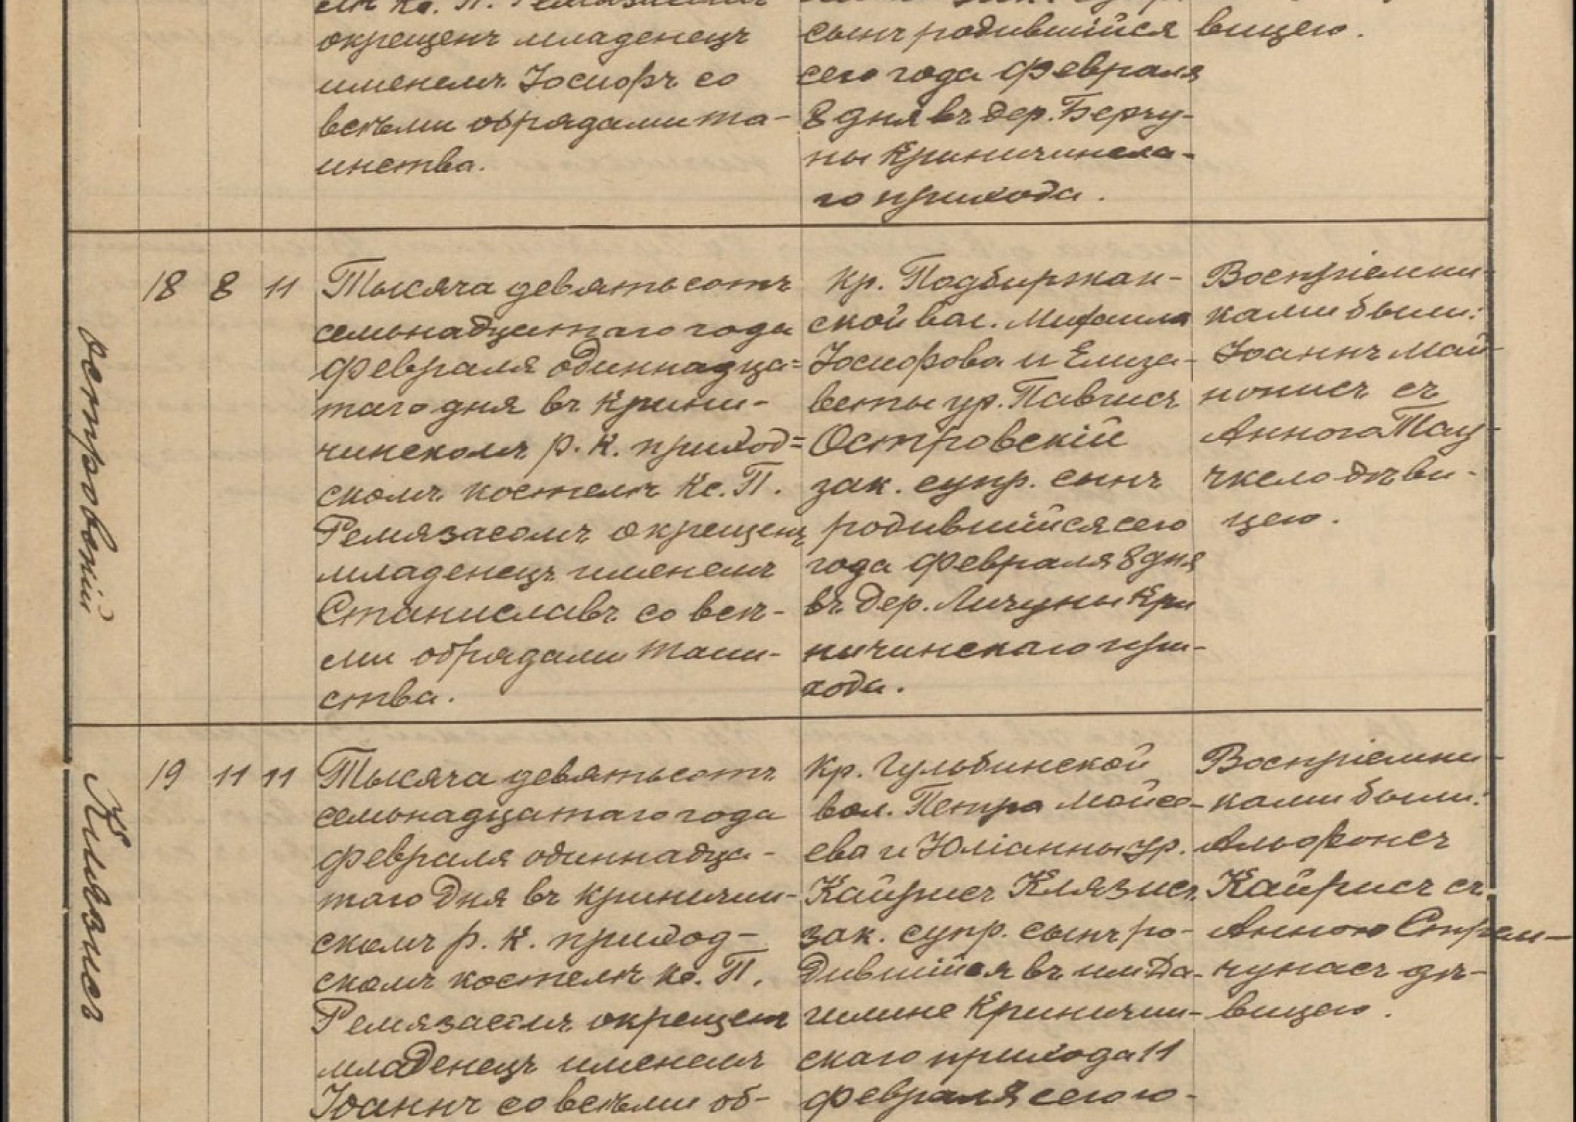 окрещенъ младенецъ
именемъ Іосифъ со
всѣми обрядами та-
инства.
сынъ родившійся
сего года февраля
8 дня въ дер. Берчу-
ны Криничинска-
го прихода.
вицею.
Островскій
18 8 11
Тысяча девятьсотъ
семьнадцатаго года
февраля одиннадца=
таго дня въ Крини-
чинскомъ р. к. приход=
скомъ костелѣ Кс. П.
Ремязасомъ окрещенъ
младенецъ именемъ
Станиславъ со всѣ-
ми обрядами таин-
ства.
кр. Подбиржан-
ской вол. Михаила
Іосифова и Елиза-
веты ур. Павгисъ
Островскій
зак. супр. сынъ
родившійся сего
года февраля 8 дня
въ дер. Личуны Кри
ничинскаго при-
хода.
Воспріемни-
ками были:
Іоаннъ Май-
нописъ съ
Анною Тау-
чкело дѣви-
цею.
Клязисъ
19 11 11
Тысяча девятьсотъ
семьнадцатаго года
февраля одиннадца-
таго дня въ Криничин-
скомъ р. к. приход-
скомъ костелѣ кс. П.
Ремязасомъ окрещенъ
младенецъ именемъ
Іоаннъ со всѣми об-
кр. Гульбинской
вол. Петра Мойсе-
ева и Юліанны ур.
Кайрисъ Клязисъ
зак. супр. сынъ ро-
дившійся въ им. Да-
гилине Криничин-
скаго прихода 11
февраля сего го-
Воспріемни-
ками были:
Альфонсъ
Кайрисъ съ
Анною Стрем-
чунасъ дѣ-
вицею.